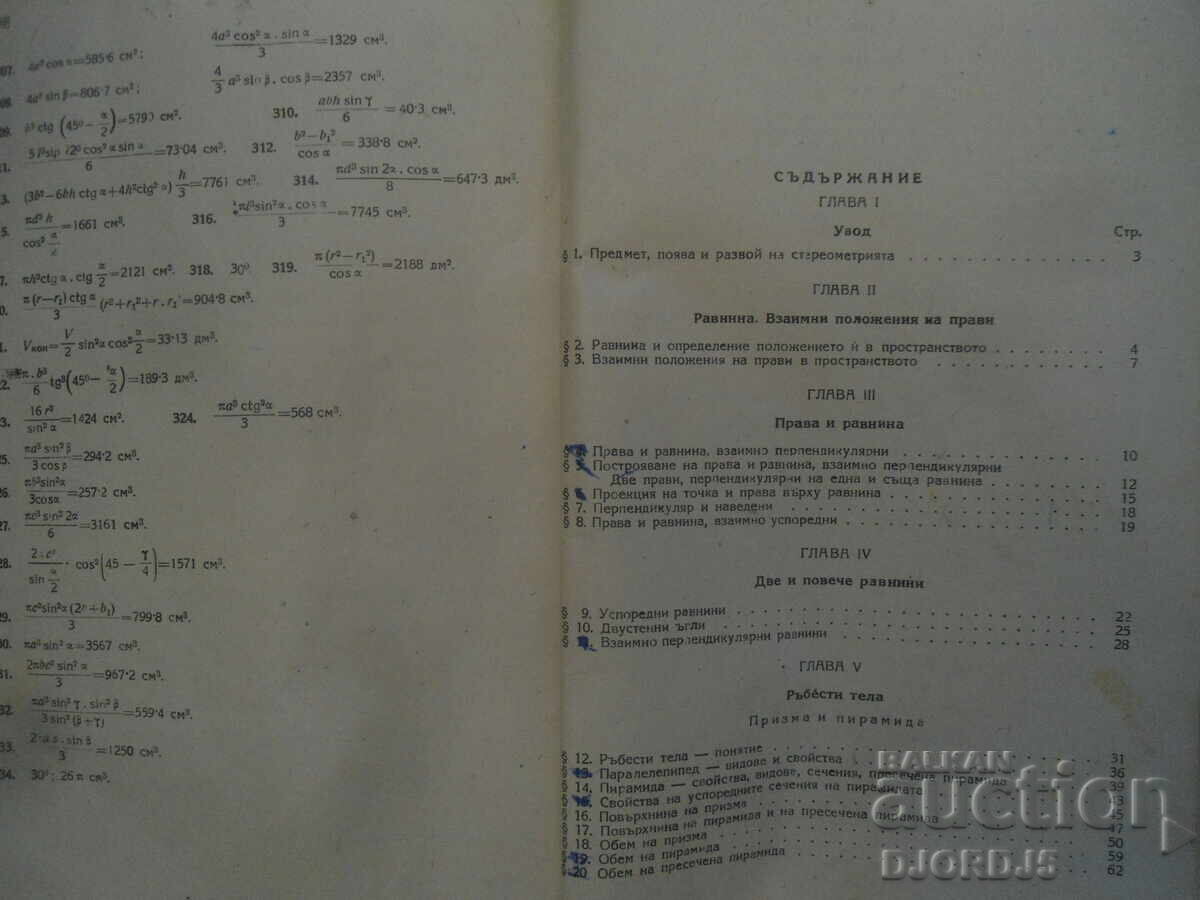 07. 4a² cos α=585·6 см²; 4a³ cos² α . sin α / 3 =1329 см³.
08. 4a² sin β=806·7 см²; 4/3 a³ sin β . cos β=2357 см³.
b³ ctg (45⁰− α/2)=5790 см². 310. abh sin γ / 6 = 40·3 см³.
cos² α sin α / 6 =73·04 см³. 312. b²−b₁² / cos α = 338·8 см².
(3b²−6bh ctg α+4h²ctg² α) h/3 =7761 см³. 314. πd³ sin 2α . cos α / 8 =647·3 дм³.
πd³ h / cos² α =1661 см³. 316. sin²α . cos α / 3 =7745 см³.
πh²ctg α . ctg α/2 =2121 см². 318. 30⁰. 319. π (r²−r₁²) / cos α =2188 дм².
π (r−r₁) ctg α / 3 (r²+r₁²+r . r₁ =904·8 см³.
Vкон= V/2 sin²α cos² α/2 =33·13 дм³.
22. π . b³ / 6 tg³(45⁰− α/2)=189·3 дм³.
16 r² / sin² α =1424 см². 324. πa³ ctg²α / 3 =568 см³.
25. πa³ sin² β / 3 cos β =294·2 см³.
26. πb³sin²α / 3cosα =257·2 см³.
27. πc³ sin² 2α / 6 =3161 см³.
28. cos²(45 − γ/4)=1571 см³.
29. πc²sin²α (2b+b₁) / 3 =799·8 см³.
30. πa³ sin² α=3567 см³.
31. 2πbc² sin² α / 3 =967·2 см³.
32. πa³ sin² γ . sin² β / 3 sin² (β+γ) =559·4 см³.
33. sin β / 3 =1250 см³.
34. 30⁰; 26 π см³.
СЪДЪРЖАНИЕ
ГЛАВА I
Увод Стр.
§ 1. Предмет, поява и развой на стереометрията . . . . . . . . . . . 3
ГЛАВА II
Равнина. Взаимни положения на прави
§ 2. Равнина и определение положението ѝ в пространството . . . . . . . 4
§ 3. Взаимни положения на прави в пространството . . . . . . . . . . 7
ГЛАВА III
Права и равнина
§ 4. Права и равнина, взаимно перпендикулярни . . . . . . . . . . . 10
§ 5. Построяване на права и равнина, взаимно перпендикулярни
Две прави, перпендикулярни на една и съща равнина . . . . . . . 12
§ 6. Проекция на точка и права върху равнина . . . . . . . . . . . 15
§ 7. Перпендикуляр и наведени . . . . . . . . . . . . . . . . 18
§ 8. Права и равнина, взаимно успоредни . . . . . . . . . . . . . 19
ГЛАВА IV
Две и повече равнини
§ 9. Успоредни равнини . . . . . . . . . . . . . . . . . . 22
§ 10. Двустенни ъгли . . . . . . . . . . . . . . . . . . . 25
§ 11. Взаимно перпендикулярни равнини . . . . . . . . . . . . . 28
ГЛАВА V
Ръбести тела
Призма и пирамида
§ 12. Ръбести тела — понятие . . . . . . . . . . . . . . . . 31
§ 13. Паралелепипед — видове и свойства . . . . . . . . . . . . 36
§ 14. Пирамида — свойства, видове, сечения, пресечена пирамида . . . . 39
§ 15. Свойства на успоредните сечения на пирамидата . . . . . . . . 43
§ 16. Повърхнина на призма . . . . . . . . . . . . . . . . . 45
§ 17. Повърхнина на пирамида и на пресечена пирамида . . . . . . . 47
§ 18. Обем на призма . . . . . . . . . . . . . . . . . . . 50
§ 19. Обем на пирамида . . . . . . . . . . . . . . . . . . 59
§ 20. Обем на пресечена пирамида . . . . . . . . . . . . . . . 62
BALKAN
auction
DJORDJ5